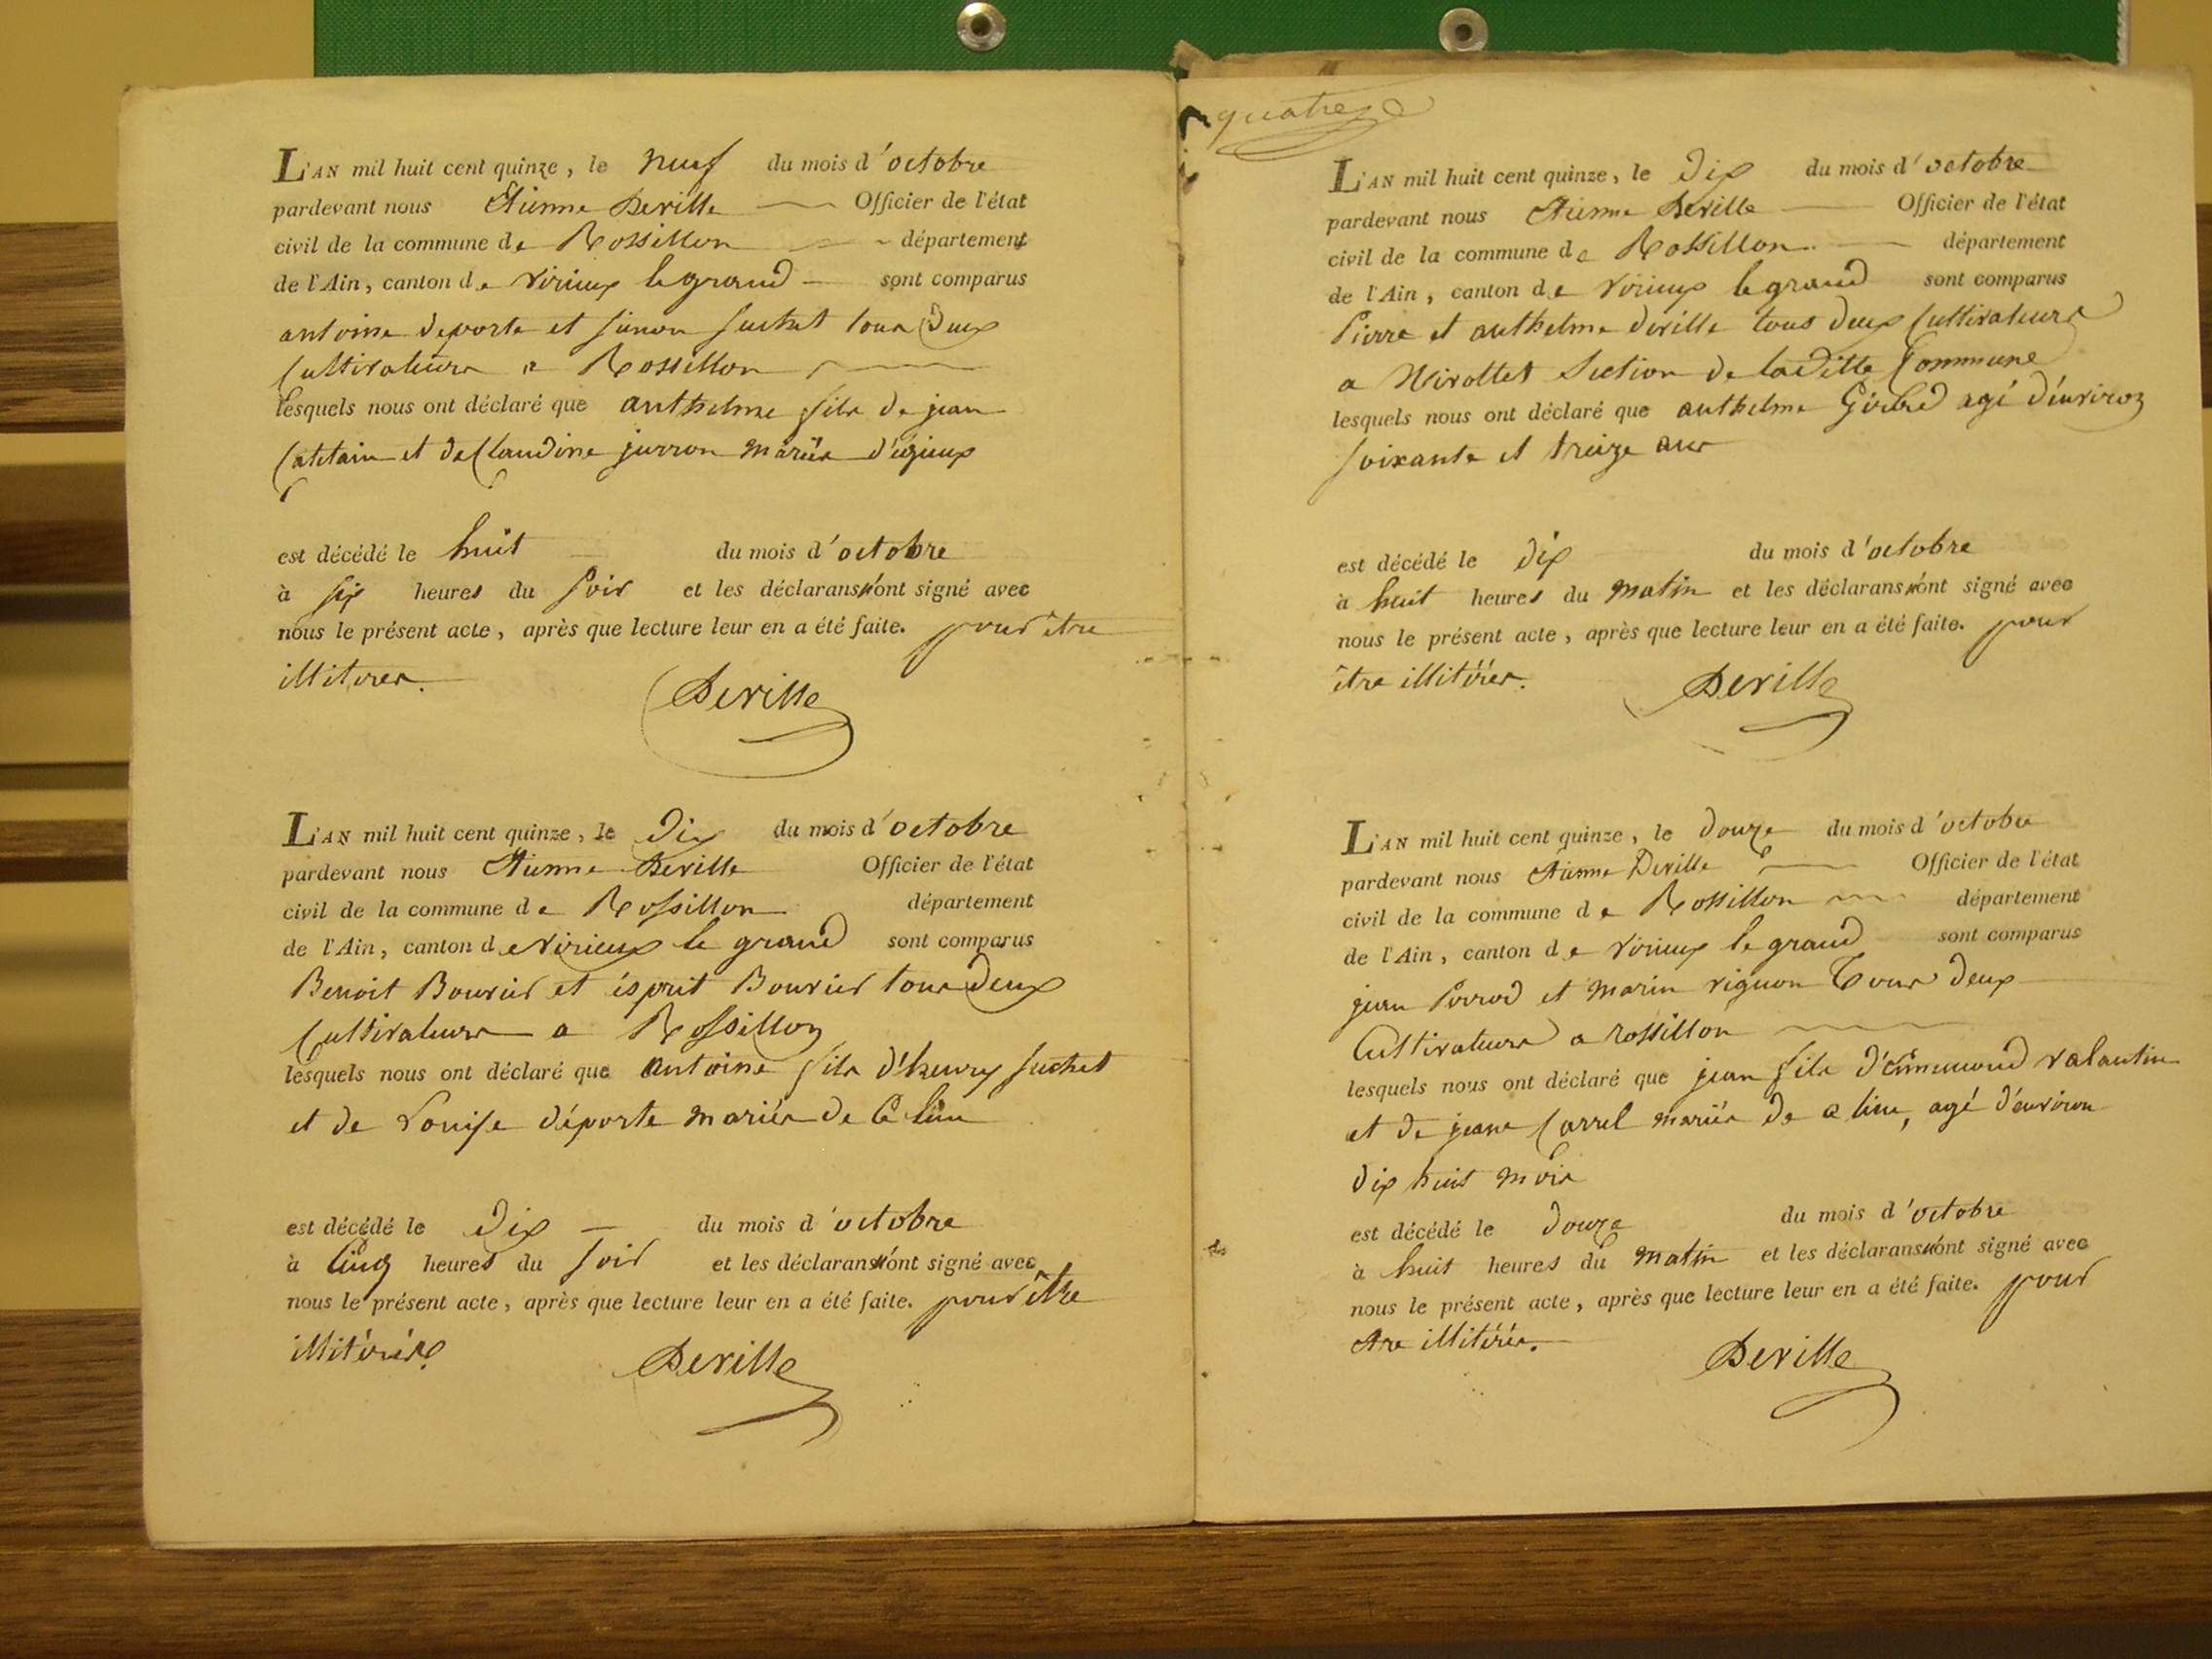 L'AN mil huit cent quinze, le neuf du mois d'octobre
pardevant nous Etienne Deville Officier de l'état
civil de la commune de Rossillon département
de l'Ain, canton de Virieux le grand sont comparus
antoine deporte et simon suchet tous deux
Cultivateurs a Rossillon
lesquels nous ont déclaré que anthelme fils de jean
et de Claudine mariés
est décédé le huit du mois d'octobre
à six heures du soir et les déclarans n'ont signé avec
nous le présent acte, après que lecture leur en a été faite. pour être
illiteres.
Deville
L'AN mil huit cent quinze, le Dix du mois d'octobre
pardevant nous Etienne Deville Officier de l'état
civil de la commune de Rossillon département
de l'Ain, canton de Virieux le grand sont comparus
Benoit Bourier et ésprit Bourier tous deux
Cultivateurs a Rossillon
lesquels nous ont déclaré que antoine fils d'henry suchet
et de Louise déporte mariés de Ce lieu
est décédé le Dix du mois d'octobre
à Cinq heures du soir et les déclarans n'ont signé avec
nous le présent acte, après que lecture leur en a été faite. pour être
illitérés.
Deville
quatre
L'AN mil huit cent quinze, le Dix du mois d'octobre
pardevant nous Etienne Deville Officier de l'état
civil de la commune de Rossillon département
de l'Ain, canton de Virieux le grand sont comparus
Pierre et anthelme deville tous deux Cultivateurs
a Section de laditte Commune
lesquels nous ont déclaré que anthelme agé d'environ
soixante et treize ans
est décédé le dix du mois d'octobre
à huit heures du matin et les déclarans n'ont signé avec
nous le présent acte, après que lecture leur en a été faite. pour
être illitérés.
Deville
L'AN mil huit cent quinze, le douze du mois d'octobre
pardevant nous Etienne Deville Officier de l'état
civil de la commune de Rossillon département
de l'Ain, canton de Virieux le grand sont comparus
jean et marin vignon Tous deux
Cultivateurs a rossillon
lesquels nous ont déclaré que jean fils d'ennemond valantin
et de jeane Carrel mariés de ce lieu, agé d'environ
dix huit mois
est décédé le douze du mois d'octobre
à huit heures du matin et les déclarans n'ont signé avec
nous le présent acte, après que lecture leur en a été faite. pour
etre illitérés.
Deville